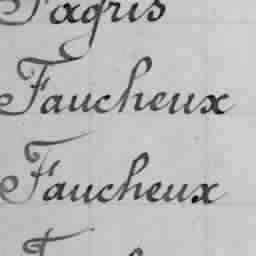 Fagris
Faucheux
Faucheux